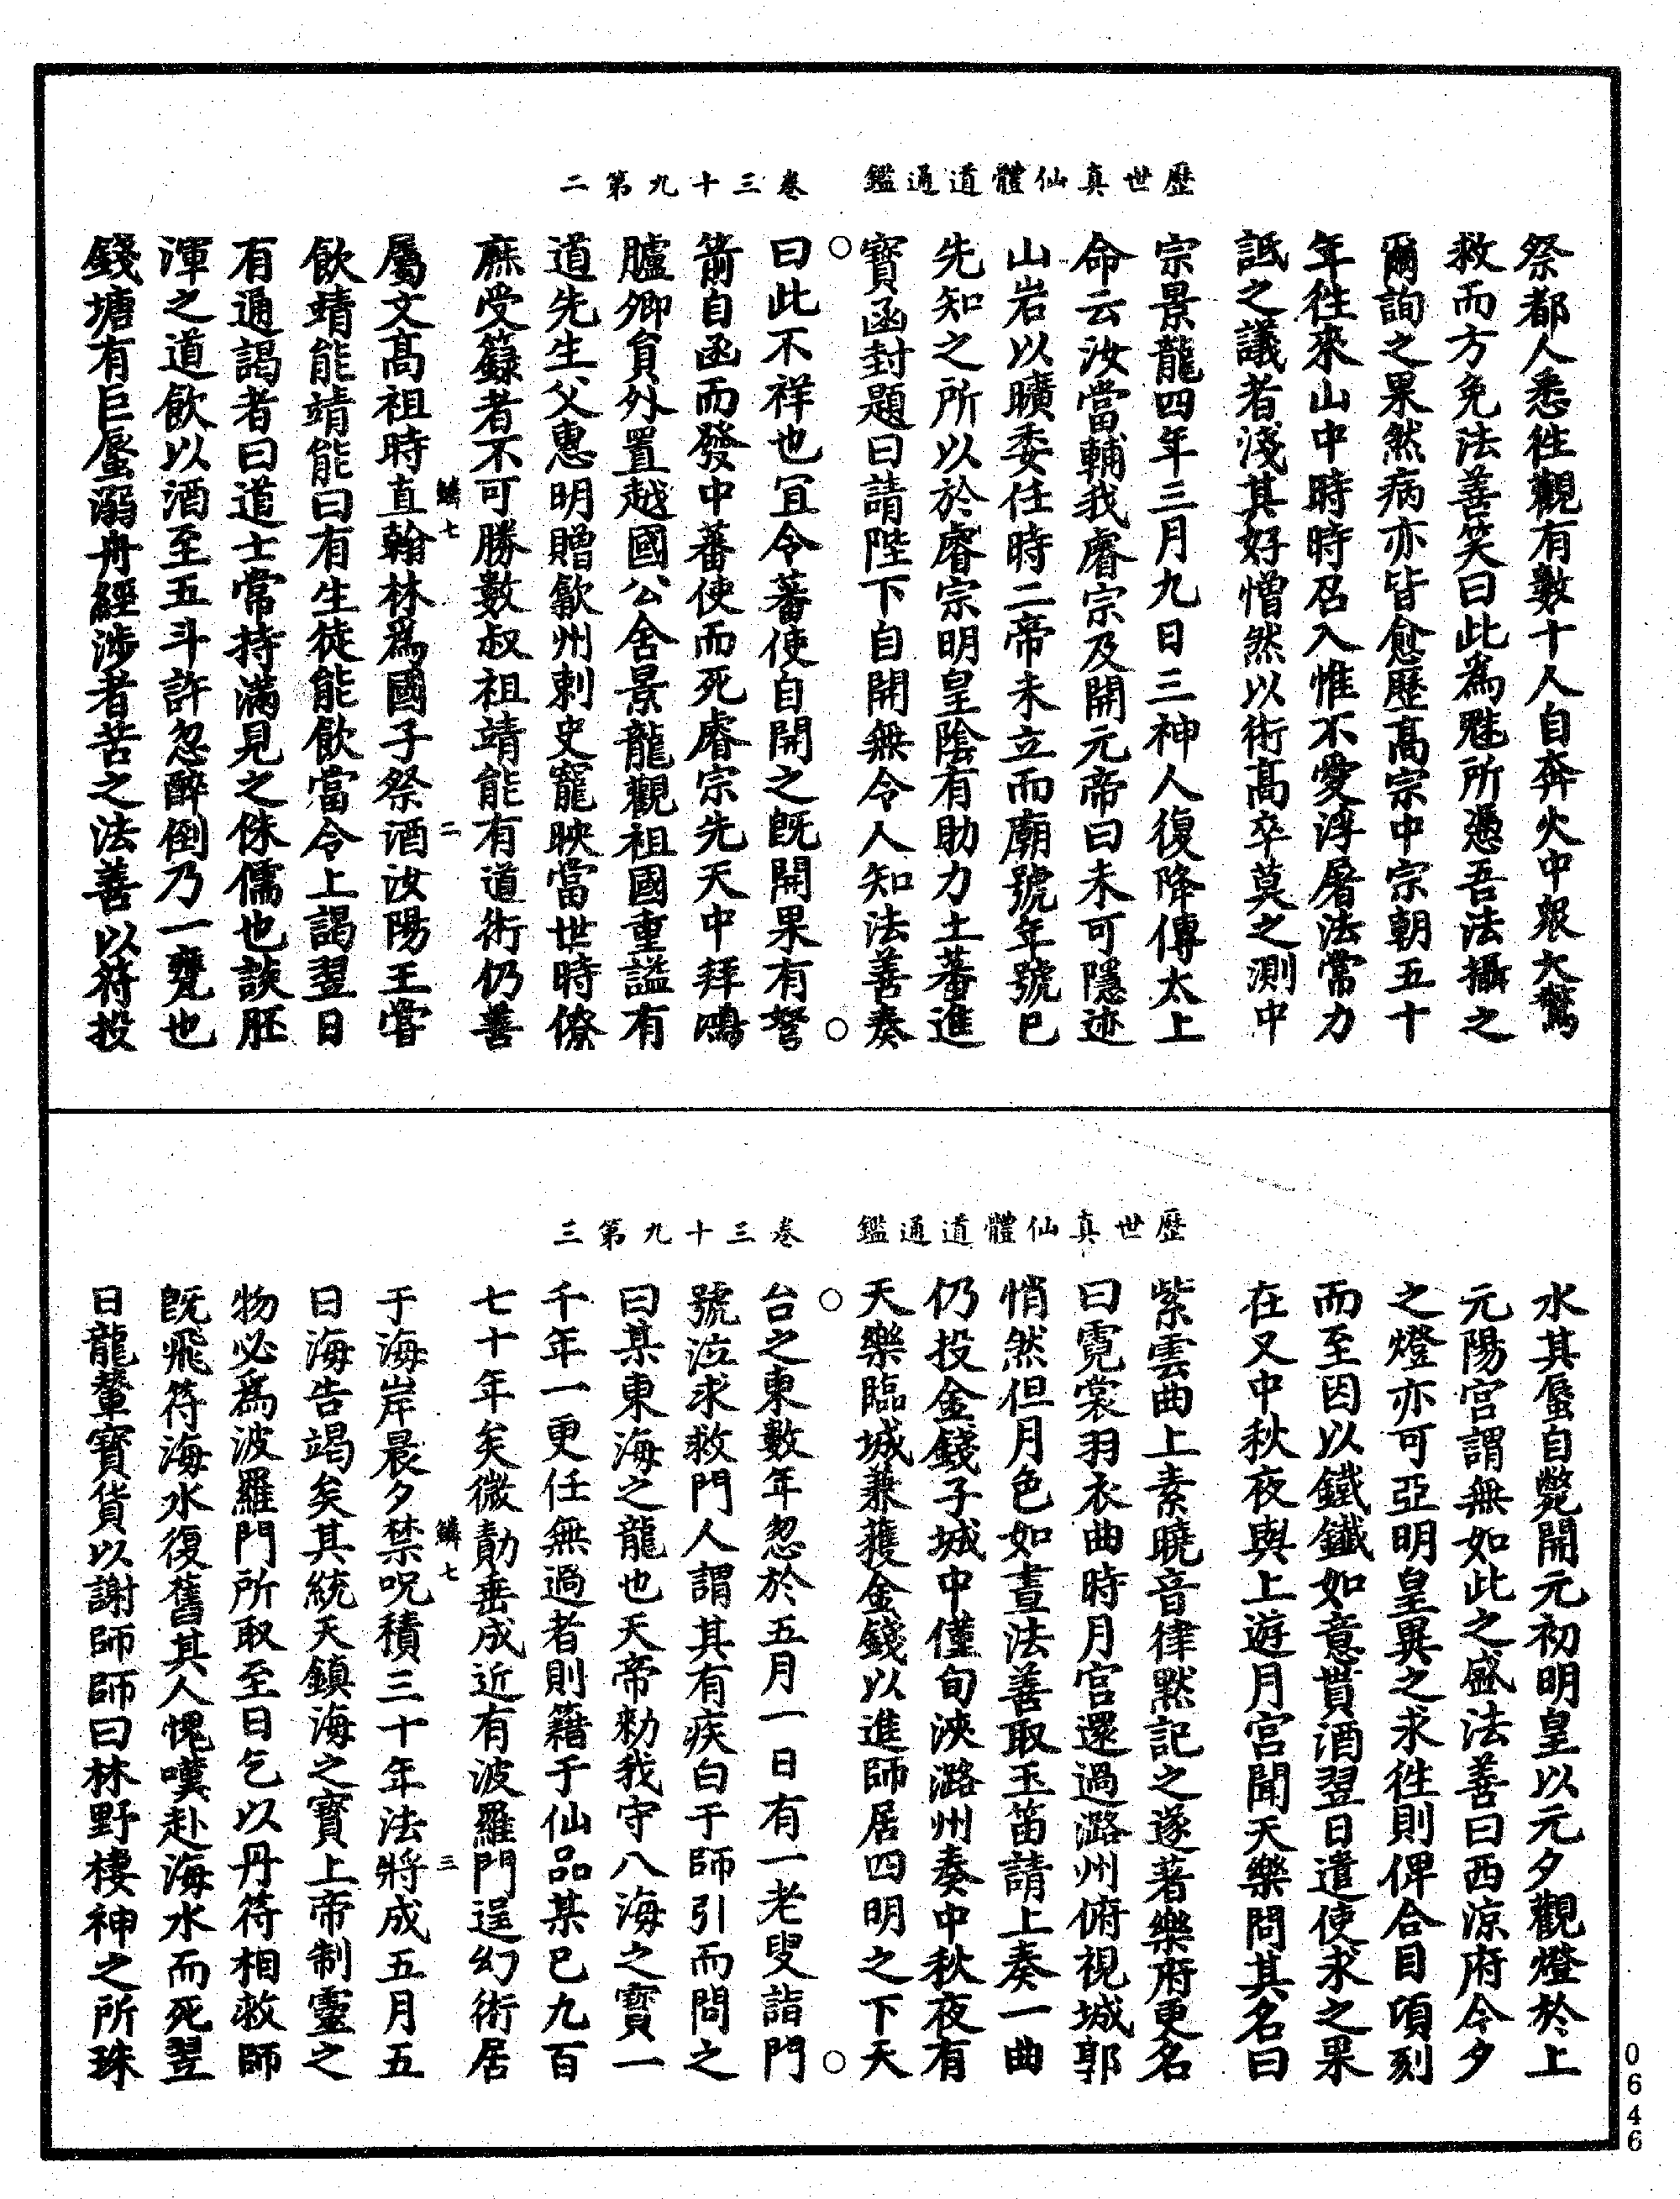 歷世真仙體道通鑑　卷三十九第二
祭都人悉往觀有數十人自奔火中衆大驚
救而方免法善笑曰此為魅所憑吾法攝之
爾詢之果然病亦皆愈歷高宗中宗朝五十
年往來山中時時召入惟不愛浮屠法常力
詆之議者淺其好憎然以術高卒莫之測中
宗景龍四年三月九日三神人復降傳太上
命云汝當輔我睿宗及開元帝曰未可隱迹
山岩以曠委任時二帝未立而廟號年號已
先知之所以於睿宗明皇陰有助力土蕃進
寶函封題曰請陛下自開無令人知法善奏
曰此不祥也宜令蕃使自開之既開果有弩
箭自函而發中蕃使而死睿宗先天中拜鴻
臚卿貟外置越國公舍景龍觀祖國重諡有
道先生父惠明贈歙州刺史寵映當世時僚
庶受籙者不可勝數叔祖靖能有道術仍善
鱗七　二
屬文高祖時直翰林為國子祭酒汝陽王嘗
飲靖能靖能曰有生徒能飲當令上謁翌日
有通謁者曰道士常持滿見之侏儒也談胚
渾之道飲以酒至五斗許忽醉倒乃一甕也
錢塘有巨蜃溺舟經涉者苦之法善以符投
歷世真仙體道通鑑　卷三十九第三
水其蜃自斃開元初明皇以元夕觀燈於上
元陽宮謂無如此之盛法善曰西涼府今夕
之燈亦可亞明皇異之求往則俾合目頃刻
而至因以鐵鐵如意貰酒翌日遣使求之果
在又中秋夜與上遊月宮聞天樂問其名曰
紫雲曲上素曉音律默記之遂著樂府更名
曰霓裳羽衣曲時月宮還過潞州俯視城郭
悄然但月色如晝法善取玉笛請上奏一曲
仍投金錢子城中僅旬浹潞州奏中秋夜有
天樂臨城兼獲金錢以進師居四明之下天
台之東數年忽於五月一日有一老叟詣門
號泣求救門人謂其有疾白于師引而問之
曰某東海之龍也天帝勑我守八海之寶一
千年一更任無過者則籍于仙品某已九百
七十年矣微勣垂成近有波羅門逞幻術居
鱗七　三
于海岸晨夕禁呪積三十年法將成五月五
日海告竭矣其統天鎮海之寶上帝制靈之
物必為波羅門所取至日乞以丹符相救師
既飛符海水復舊其人愧嘆赴海水而死翌
日龍輦寶貨以謝師師曰林野棲神之所珠
0646